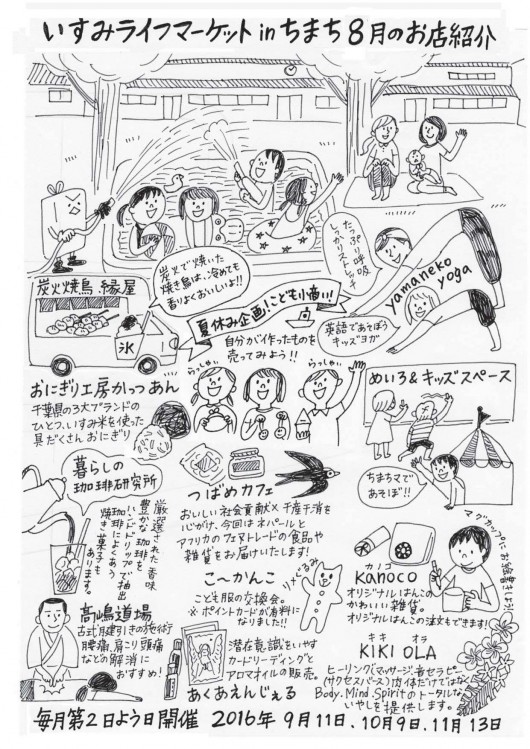 いすみライフマーケット in ちまち 8月のお店紹介
炭火焼鳥 縁屋
氷
炭火で焼いた
焼き鳥は、冷めても
香りよくおいしいよ!!
たっぷり呼吸
しっかりストレッチ
yamaneko
yoga
英語であそぼう
キッズヨガ
夏休み企画!こども小商い!
自分がイ作ったものを
売ってみよう!!
らっしゃい
らっしゃい
おにぎり工房かっつあん
千葉県の3大ブランドの
ひとつ、いすみ米を使った
具だくさんおにぎり
めいろ&キッズスペース
ちまちママで
あそぼ!!
暮らしの
珈琲研究所
厳選された香味
豊かな珈琲を
ハンドドリップで抽出
珈琲によくあう
焼き菓子も
あります。
つばめカフェ
おいしい社会貢献×千産千消を
心がけ、今回はネパールと
アフリカのフェアトレードの食品や
雑貨をお届けいたします!
マグカップにお絵書きしよう!
カノコ
Kanoco
オリジナルはんこの
かわいい雑貨。
オリジナルはんこの注文もできます!
こ〜かんこ
こども服の交換会。
※ポイントカードが有料に
なりました!!
リメイくるみ
高嶋道場
古式月建引きの施術
腰痛、肩こり頭痛
などの解消に
おすすめ!
潜在意識をいやす
カードリーディングと
アロマオイルの販売。
あくあえんじぇる
キキ オラ
KIKI OLA
ヒーリング(マッサージ、音セラピー
(サクセスバース)肉体だけではなく
Body.Mind.Spiritのトータルな
いやしを提供します。
毎月第2日よう日開催 2016年 9月11日、10月9日、11月13日